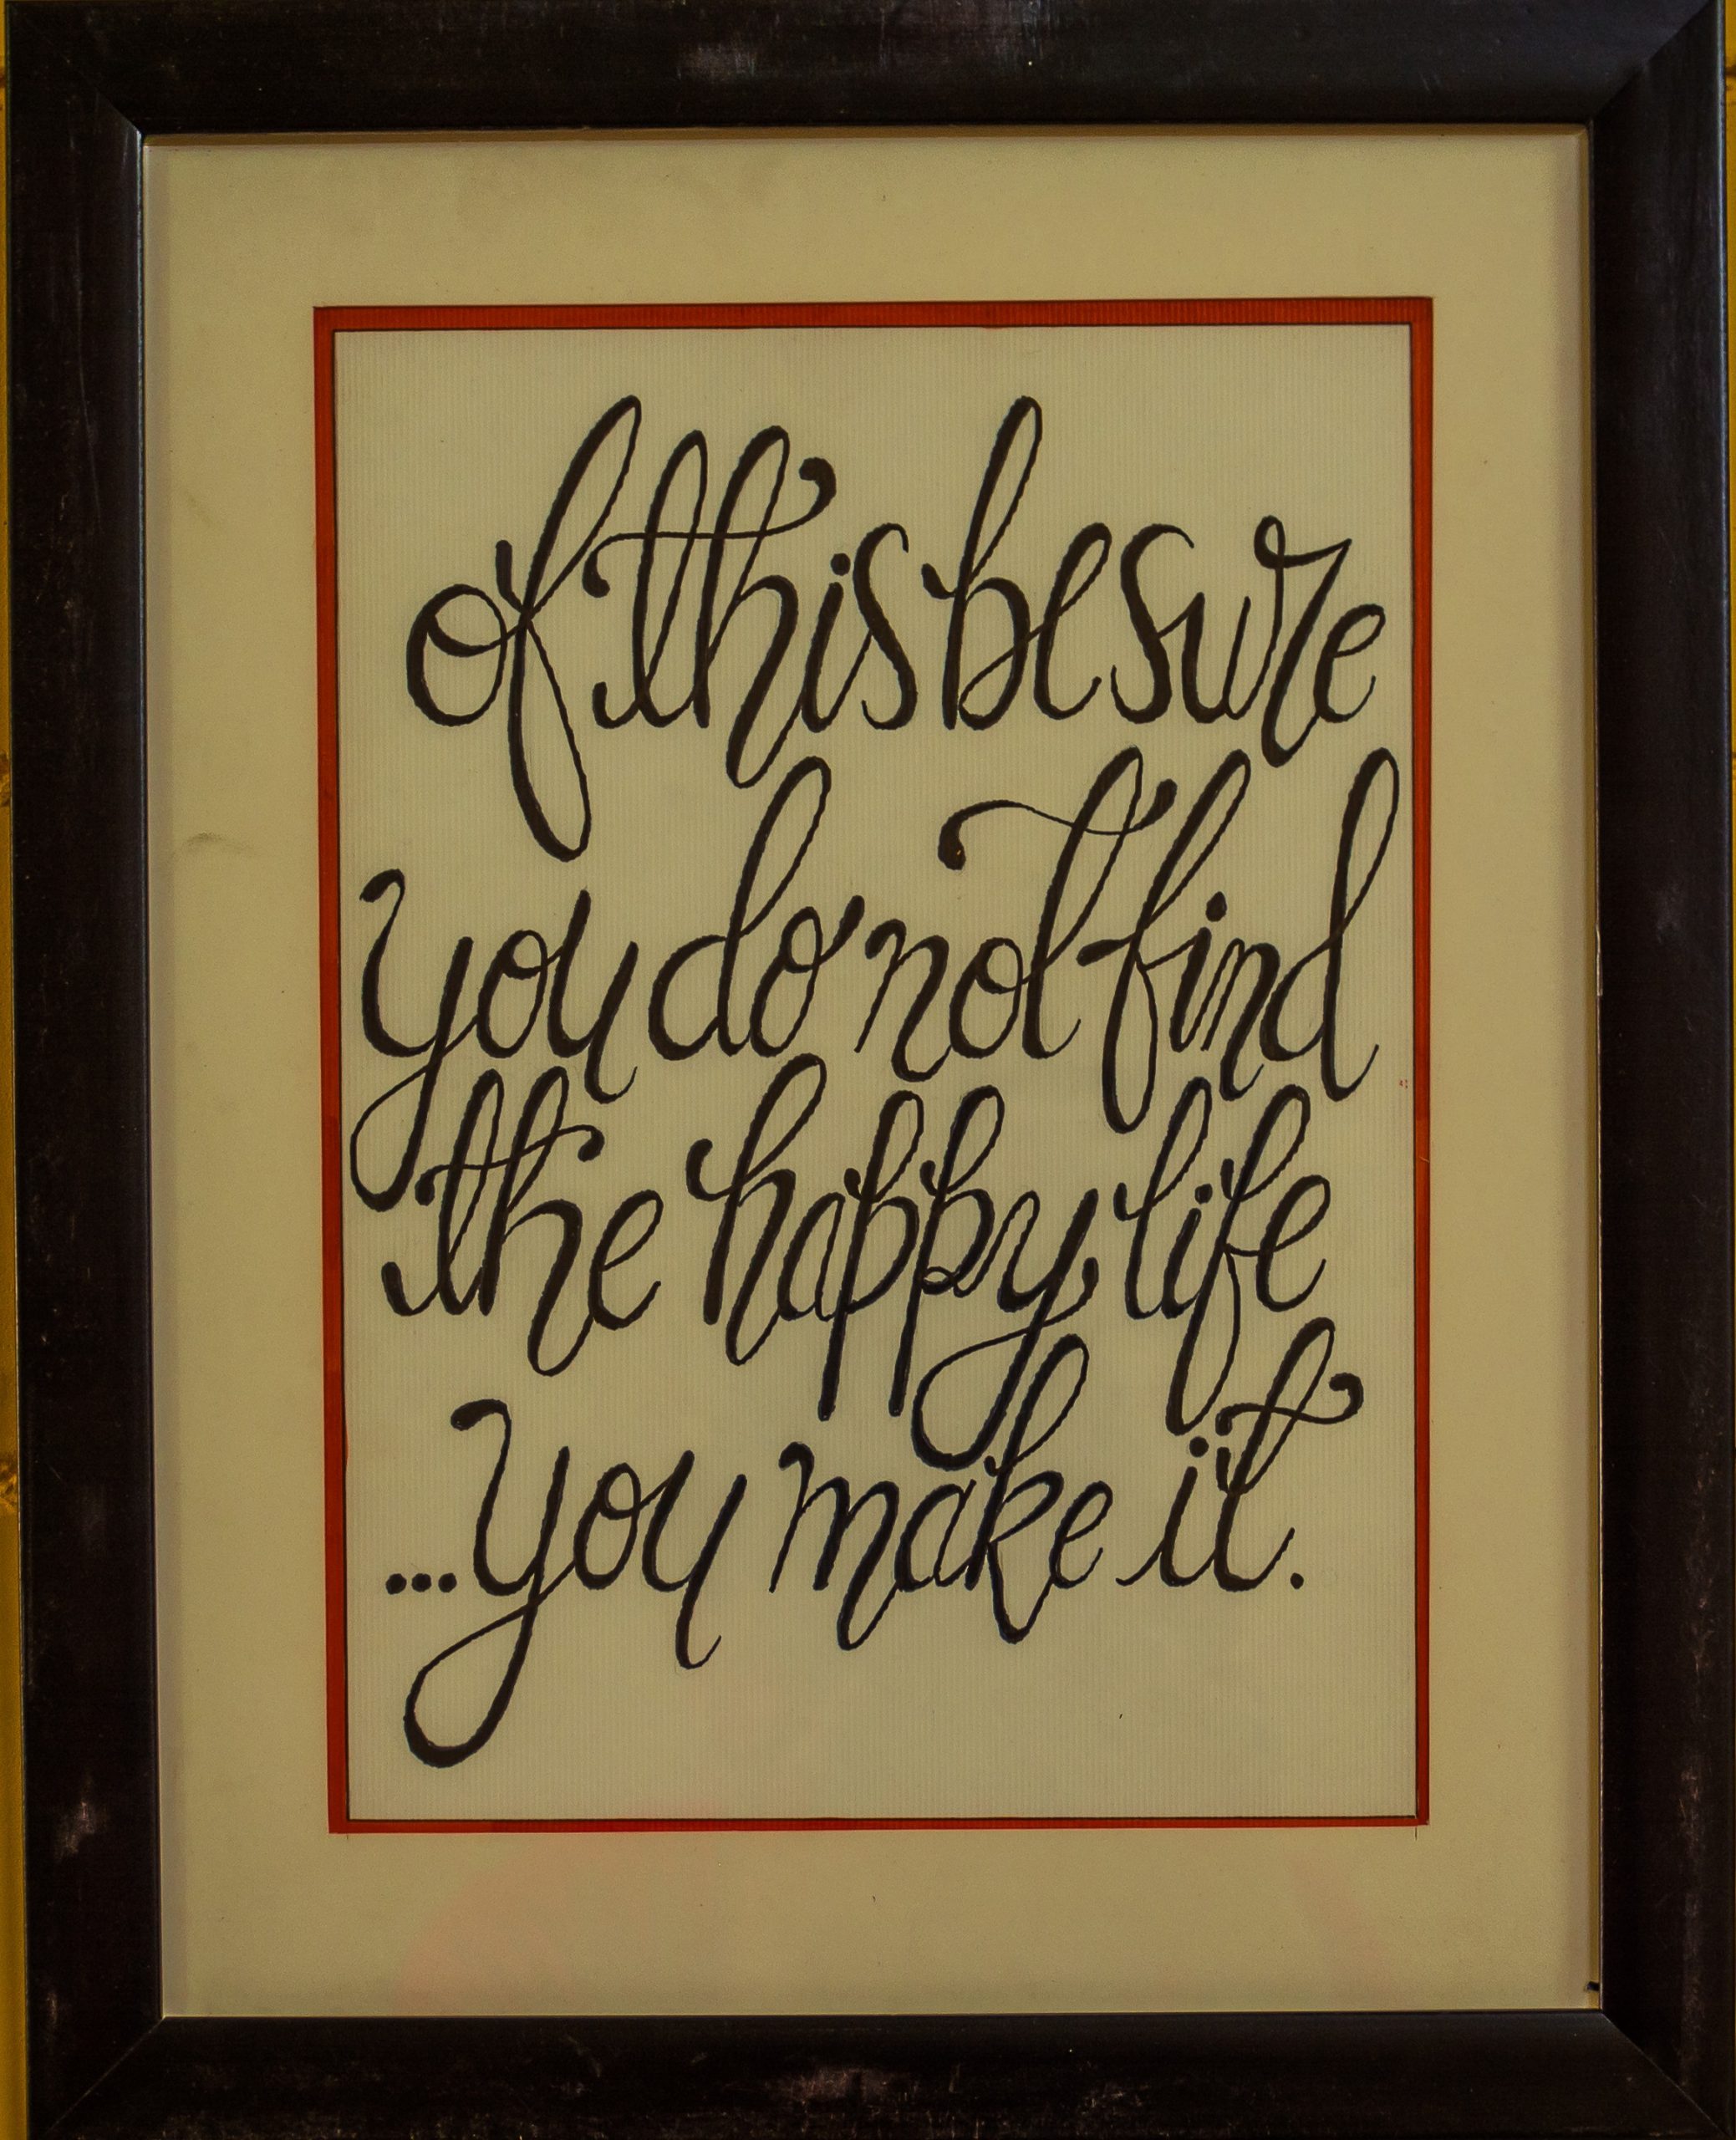 of this be sure
you do not find
the happy life
...you make it.